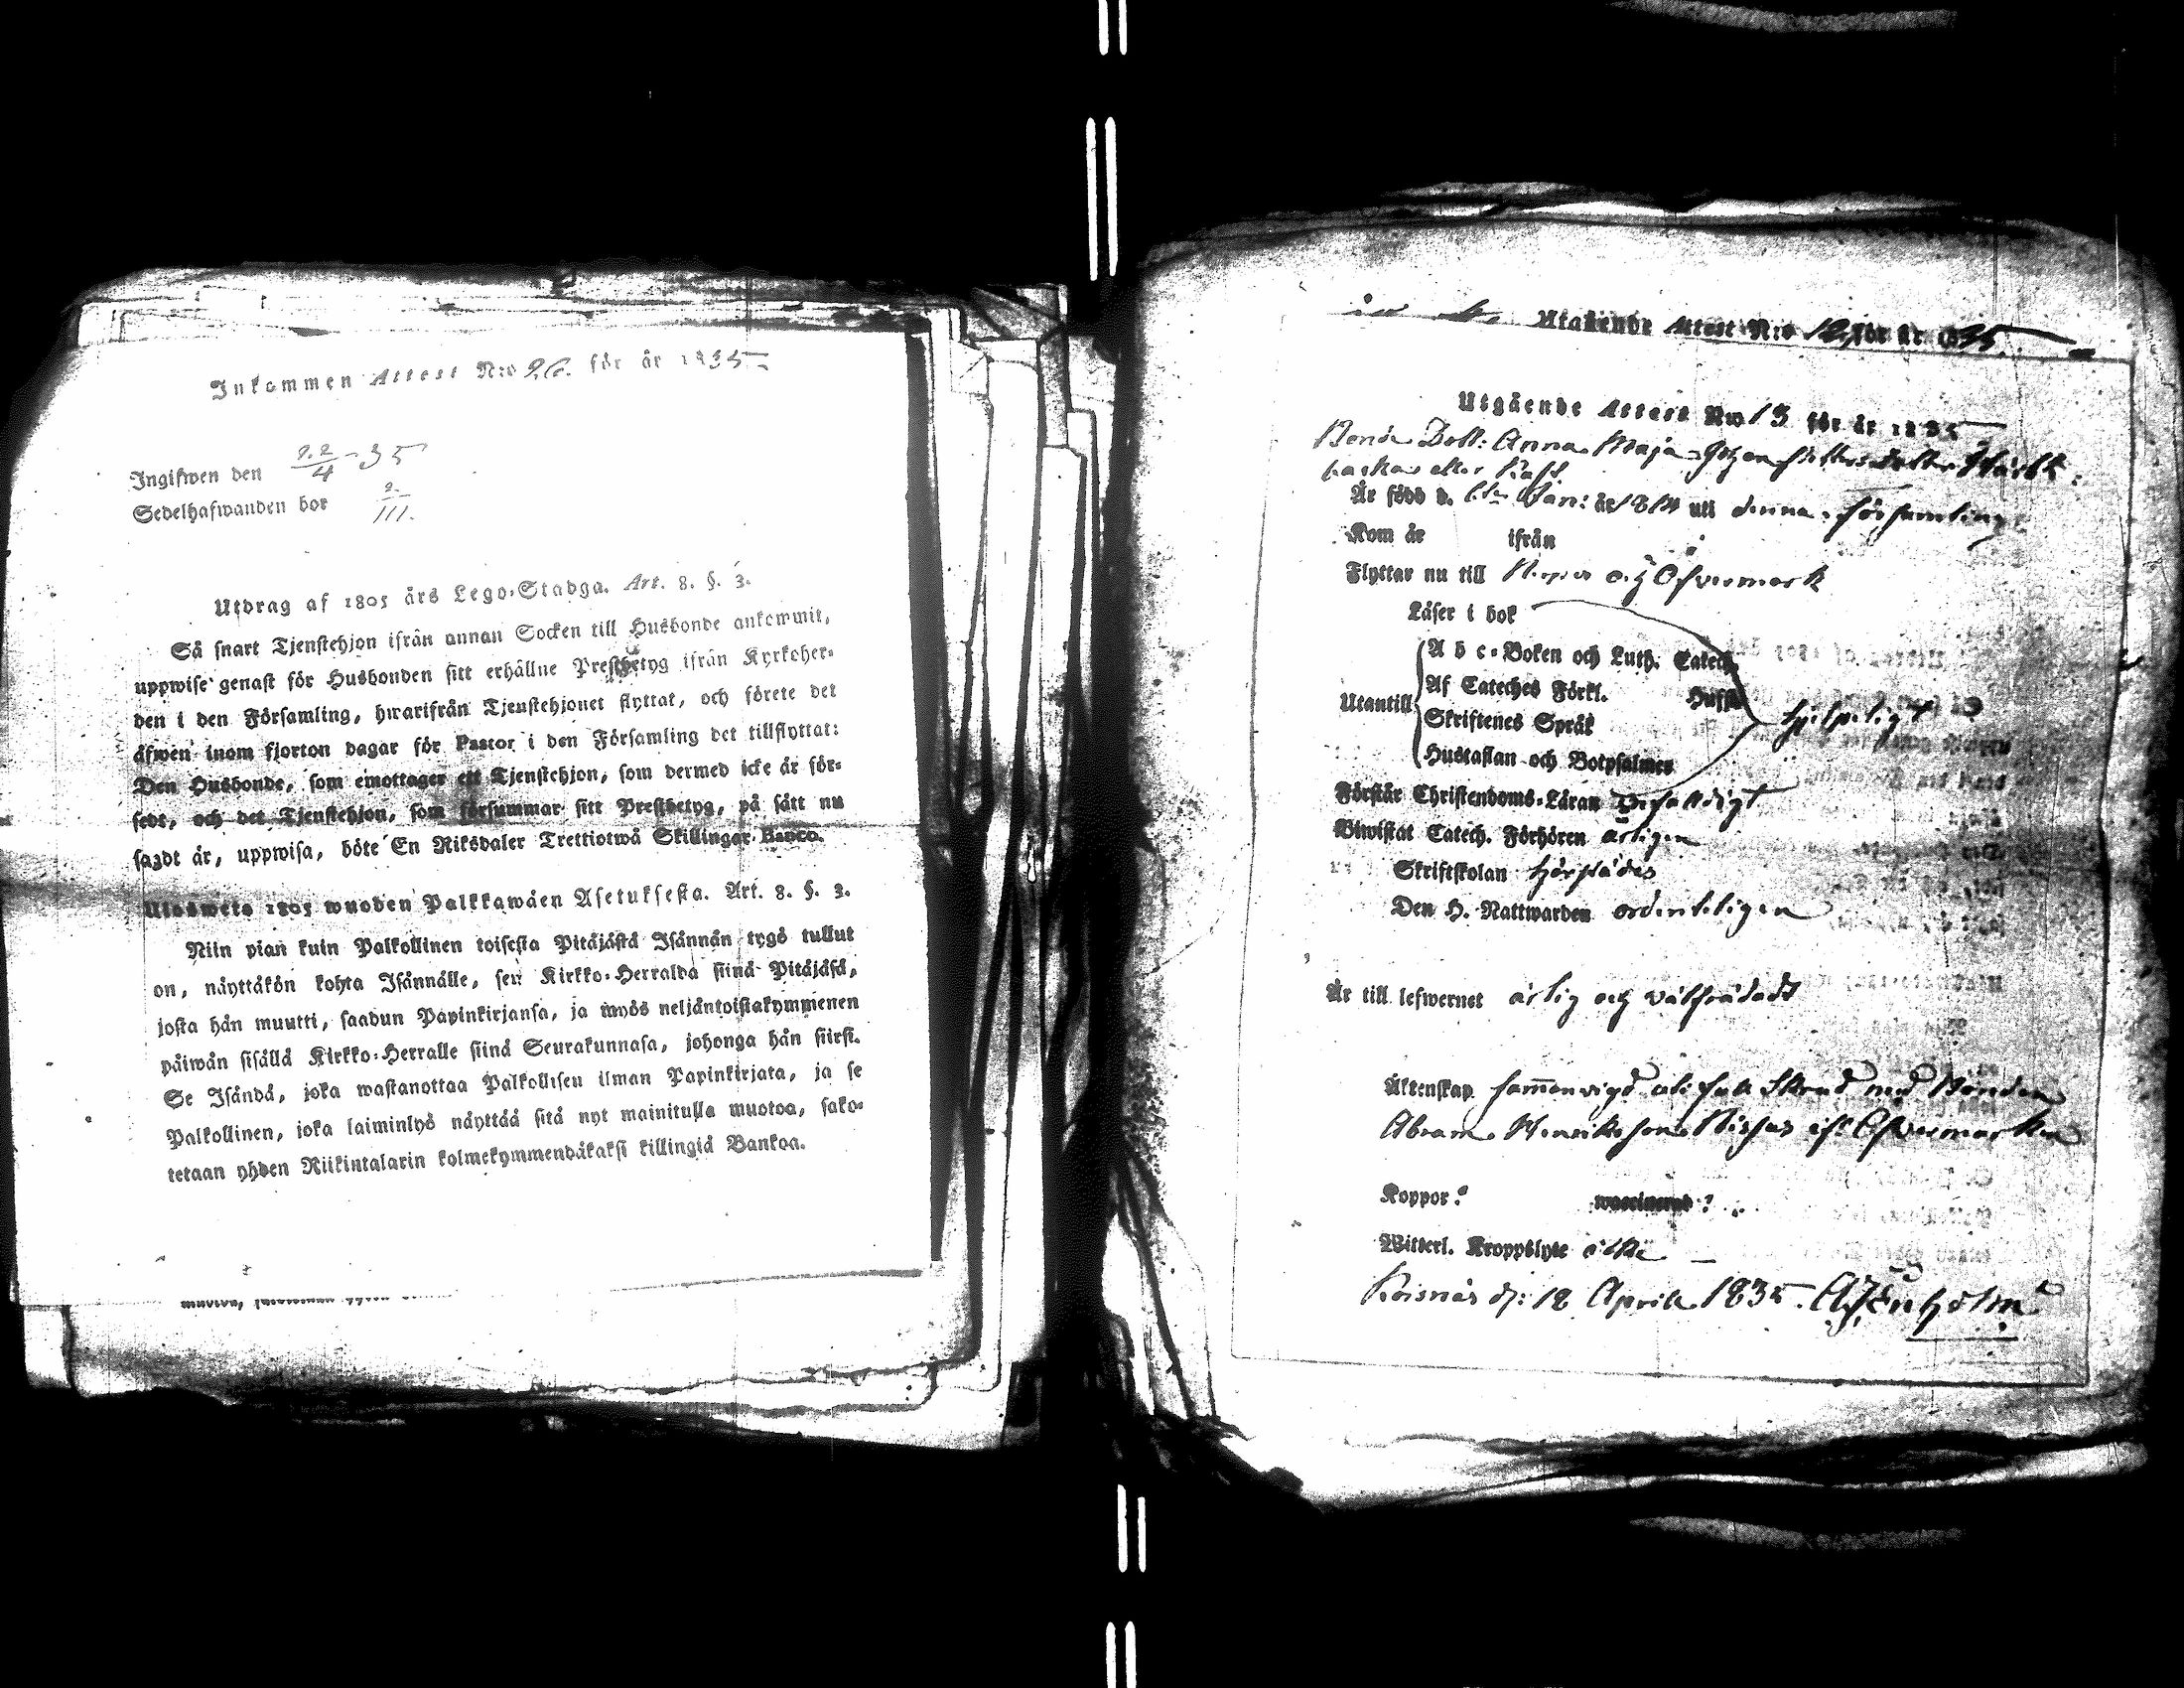 Inkommen Attest N:o 26. för år 1835
Ingifwen den 22/4 - 35
Sedelhafwanden bor 2/III.
Utdrag af 1805 års Lego-Stadga. Art. 8. §. 3.
Så snart Tjenstehjon ifrån annan Socken till Husbonde ankommit,
uppwise genast för Husbonden sitt erhållne Prestbetyg ifrån Kyrkoher-
den i den Församling, hwarifrån Tjenstehjonet flyttat, och förete det
äfwen inom fjorton dagar för Pastor i den Församling det tillflyttat:
Den Husbonde, som emottager ett Tjenstehjon, som dermed icke är för-
sedt, och det Tjenstehjon, som försummar sitt Prestbetyg, på sätt nu
sagdt är, uppwisa, böte En Riksdaler Trettiotwå Skillingar Banco.
Ulosweto 1805 wuoden Palkkawäen Asetuksesta. Art. 8. §. 3.
Niin pian kuin Palkollinen toisesta Pitäjästä Isännän tygö tullut
on, näyttäkön kohta Isännälle, sen Kirkko-Herralda siinä Pitäjäsä,
josta hän muutti, saadun Papinkirjansa, ja myös neljäntoistakymmenen
päiwän sisällä Kirkko-Herralle siinä Seurakunnasa, johonga hän siirsi.
Se Isändä, joka wastanottaa Palkollisen ilman Papinkirjata, ja se
Palkollinen, joka laiminlyö näyttää sitä nyt mainitulla muotoa, sako-
tetaan yhden Riikintalarin kolmekymmendäkaksi killingiä Bankoa.
Utgående Attest N:o 12 för år 1835
Utgående Attest N:o 13 för år 1835
Bond Dott: Anna Maja
eller
Är född d. Jan: år 1814 uti denna församling
Kom år ifrån
Flyttar nu till och Öfvermark
Läser i bok
A b c-Boken och Luth. Catech.
Af Cateches Förkl. Hufst.
Utantill
Skriftenes Språk
Hustaflan och Botpsalmer
hjelpeligt
Förstår Christendoms-Läran enfaldigt
Biwistat Catech. Förhören årligen
Skriftskolan härstädes
Den H. Nattwarden ordenteligen
Är till lefwernet ärlig och välfrädadt
Äktenskap sammanvigd med Bonden
Abram Henriksson ifr. Öfvermark
Koppor? waccinerad?
Witterl. Kroppslyte icke
d: 18 April 1835.